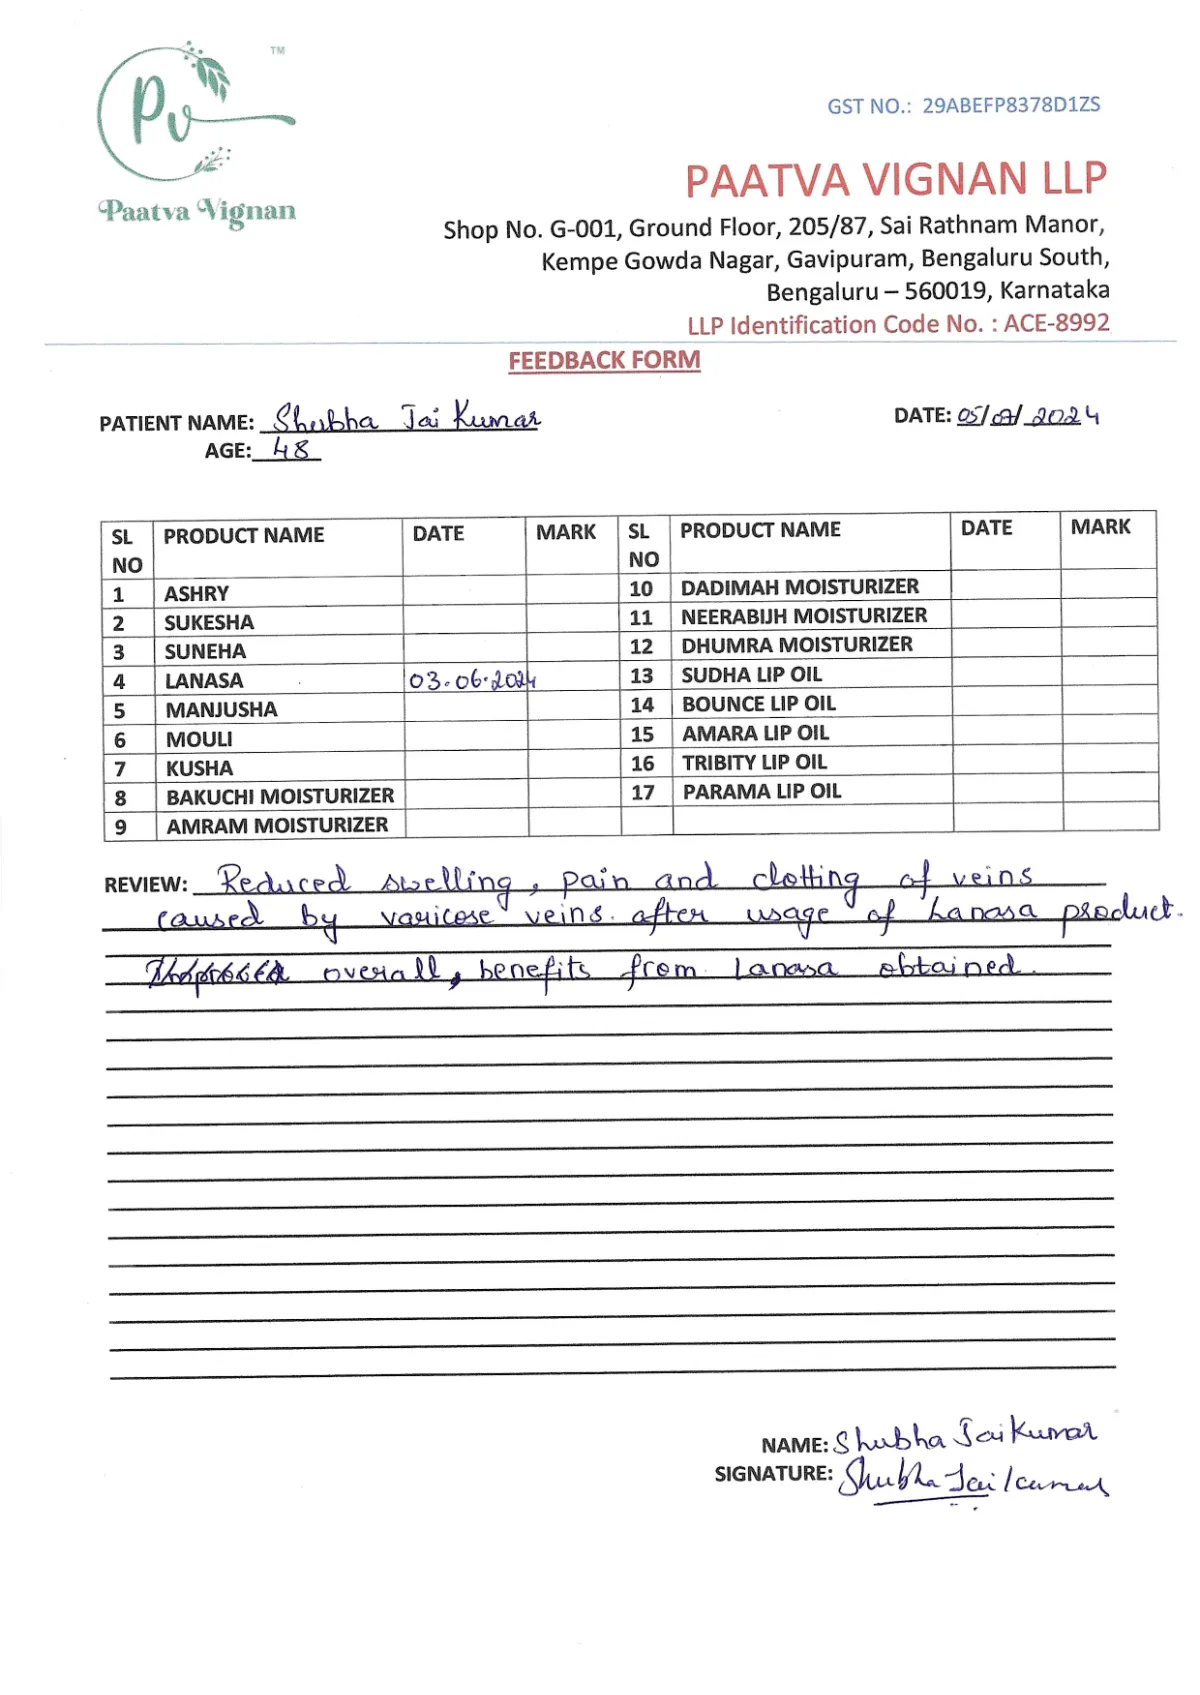 Pv
TM
Paatva Vignan
GST NO.: 29ABEFP8378D1ZS
PAATVA VIGNAN LLP
Shop No. G-001, Ground Floor, 205/87, Sai Rathnam Manor,
Kempe Gowda Nagar, Gavipuram, Bengaluru South,
Bengaluru – 560019, Karnataka
LLP Identification Code No. : ACE-8992
FEEDBACK FORM
PATIENT NAME: Shubha Jai Kumar DATE: 05/07/2024
AGE: 48
SL NO PRODUCT NAME DATE MARK SL NO PRODUCT NAME DATE MARK
1 ASHRY 10 DADIMAH MOISTURIZER
2 SUKESHA 11 NEERABIJH MOISTURIZER
3 SUNEHA 12 DHUMRA MOISTURIZER
4 LANASA 03.06.2024 13 SUDHA LIP OIL
5 MANJUSHA 14 BOUNCE LIP OIL
6 MOULI 15 AMARA LIP OIL
7 KUSHA 16 TRIBITY LIP OIL
8 BAKUCHI MOISTURIZER 17 PARAMA LIP OIL
9 AMRAM MOISTURIZER
REVIEW: Reduced swelling, pain and clotting of veins
caused by varicose veins. after usage of Lanasa product.
overall, benefits from Lanasa obtained.
NAME: Shubha Jai Kumar
SIGNATURE: Shubha Jai Kumar